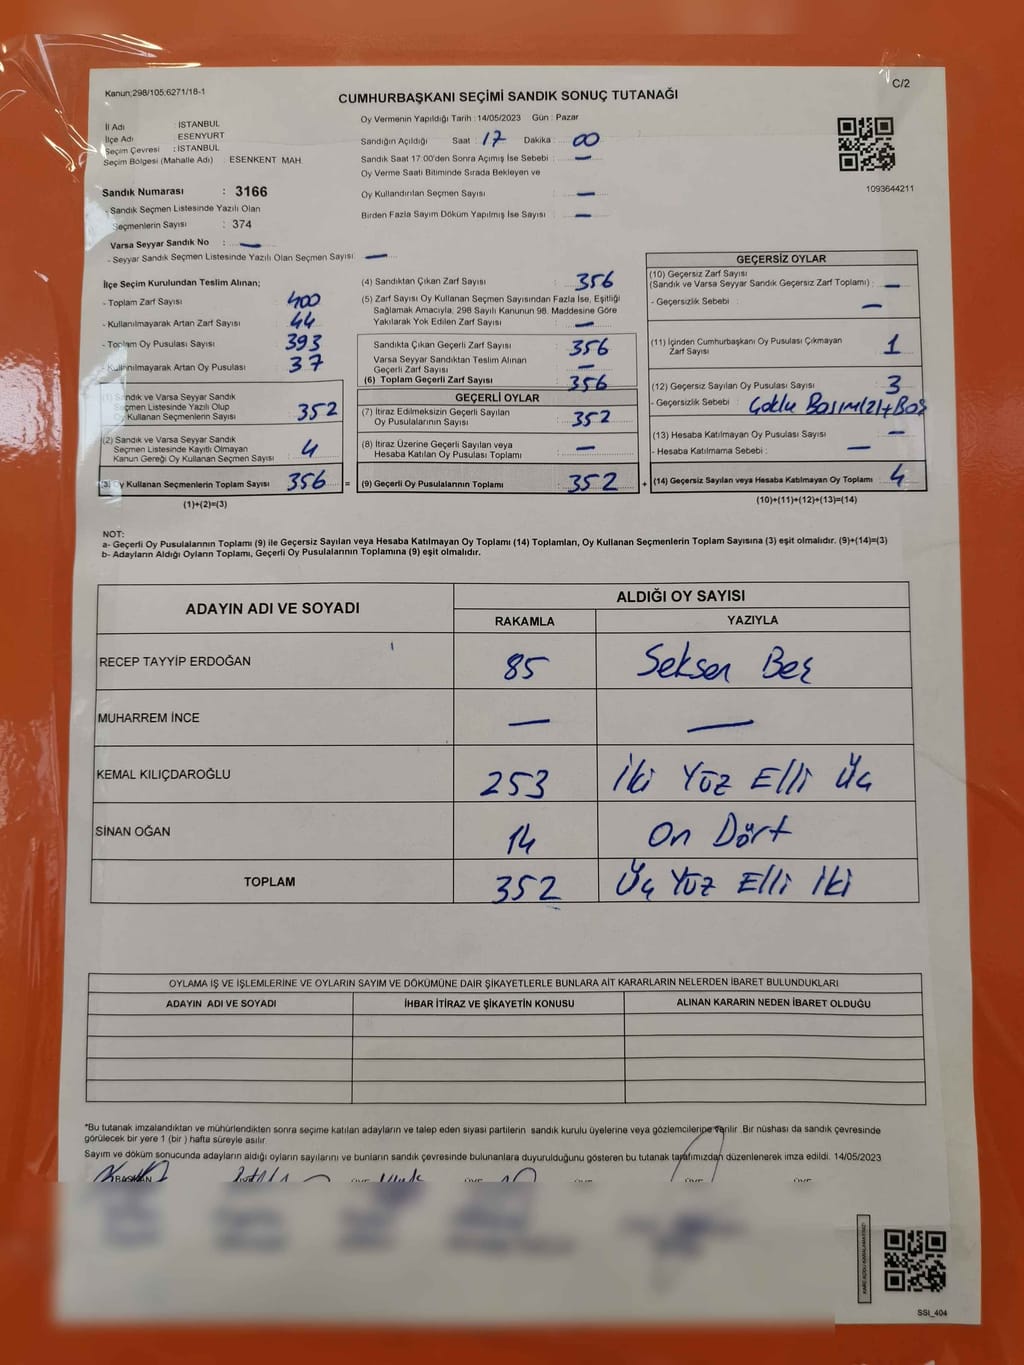 Kanun;298/105;6271/18-1
C/2
CUMHURBAŞKANI SEÇİMİ SANDIK SONUÇ TUTANAĞI
İl Adı : İSTANBUL
İlçe Adı : ESENYURT
Seçim Çevresi : İSTANBUL
Seçim Bölgesi (Mahalle Adı) ESENKENT MAH.
Oy Vermenin Yapıldığı Tarih : 14/05/2023 Gün : Pazar
Sandığın Açıldığı Saat : 17 Dakika : 00
Sandık Saat 17.00'den Sonra Açımış İse Sebebi : —
Oy Verme Saati Bitiminde Sırada Bekleyen ve
Oy Kullandırılan Seçmen Sayısı : —
Birden Fazla Sayım Döküm Yapılmış İse Sayısı : —
1093644211
Sandık Numarası : 3166
- Sandık Seçmen Listesinde Yazılı Olan
Seçmenlerin Sayısı : 374
Varsa Seyyar Sandık No : —
- Seyyar Sandık Seçmen Listesinde Yazılı Olan Seçmen Sayısı : —
İlçe Seçim Kurulundan Teslim Alınan;
- Toplam Zarf Sayısı 400
- Kullanılmayarak Artan Zarf Sayısı 44
- Toplam Oy Pusulası Sayısı 393
- Kullanılmayarak Artan Oy Pusulası 37
(1) Sandık ve Varsa Seyyar Sandık
Seçmen Listesinde Yazılı Olup
Oy Kullanan Seçmenlerin Sayısı 352
(2) Sandık ve Varsa Seyyar Sandık
Seçmen Listesinde Kayıtlı Olmayan
Kanun Gereği Oy Kullanan Seçmen Sayısı 4
(3) Oy Kullanan Seçmenlerin Toplam Sayısı 356 =
(1)+(2)=(3)
(4) Sandıktan Çıkan Zarf Sayısı 356
(5) Zarf Sayısı Oy Kullanan Seçmen Sayısından Fazla İse, Eşitliği
Sağlamak Amacıyla, 298 Sayılı Kanunun 98. Maddesine Göre
Yakılarak Yok Edilen Zarf Sayısı —
Sandıkta Çıkan Geçerli Zarf Sayısı 356
Varsa Seyyar Sandıktan Teslim Alınan
Geçerli Zarf Sayısı —
(6) Toplam Geçerli Zarf Sayısı 356
GEÇERLİ OYLAR
(7) İtiraz Edilmeksizin Geçerli Sayılan
Oy Pusulalarının Sayısı 352
(8) İtiraz Üzerine Geçerli Sayılan veya
Hesaba Katılan Oy Pusulası Toplamı —
(9) Geçerli Oy Pusulalarının Toplamı 352 +
GEÇERSİZ OYLAR
(10) Geçersiz Zarf Sayısı
(Sandık ve Varsa Seyyar Sandık Geçersiz Zarf Toplamı) : —
- Geçersizlik Sebebi : —
(11) İçinden Cumhurbaşkanı Oy Pusulası Çıkmayan
Zarf Sayısı 1
(12) Geçersiz Sayılan Oy Pusulası Sayısı 3
- Geçersizlik Sebebi : Çoklu Basım(2)+Boş
(13) Hesaba Katılmayan Oy Pusulası Sayısı —
- Hesaba Katılmama Sebebi : —
(14) Geçersiz Sayılan veya Hesaba Katılmayan Oy Toplamı 4
(10)+(11)+(12)+(13)=(14)
NOT:
a- Geçerli Oy Pusulalarının Toplamı (9) ile Geçersiz Sayılan veya Hesaba Katılmayan Oy Toplamı (14) Toplamları, Oy Kullanan Seçmenlerin Toplam Sayısına (3) eşit olmalıdır. (9)+(14)=(3)
b- Adayların Aldığı Oyların Toplamı, Geçerli Oy Pusulalarının Toplamına (9) eşit olmalıdır.
ADAYIN ADI VE SOYADI ALDIĞI OY SAYISI
RAKAMLA YAZIYLA
RECEP TAYYİP ERDOĞAN 85 Seksen Beş
MUHARREM İNCE — —
KEMAL KILIÇDAROĞLU 253 İki Yüz Elli Üç
SİNAN OĞAN 14 On Dört
TOPLAM 352 Üç Yüz Elli İki
OYLAMA İŞ VE İŞLEMLERİNE VE OYLARIN SAYIM VE DÖKÜMÜNE DAİR ŞİKAYETLERLE BUNLARA AİT KARARLARIN NELERDEN İBARET BULUNDUKLARI
ADAYIN ADI VE SOYADI İHBAR İTİRAZ VE ŞİKAYETİN KONUSU ALINAN KARARIN NEDEN İBARET OLDUĞU
*Bu tutanak imzalandıktan ve mühürlendikten sonra seçime katılan adayların ve talep eden siyasi partilerin sandık kurulu üyelerine veya gözlemcilerine verilir. Bir nüshası da sandık çevresinde
görülecek bir yere 1 (bir ) hafta süreyle asılır.
Sayım ve döküm sonucunda adayların aldığı oyların sayılarını ve bunların sandık çevresinde bulunanlara duyurulduğunu gösteren bu tutanak tarafımızdan düzenlenerek imza edildi. 14/05/2023
BAŞKAN ÜYE ÜYE ÜYE ÜYE ÜYE
SSI_404